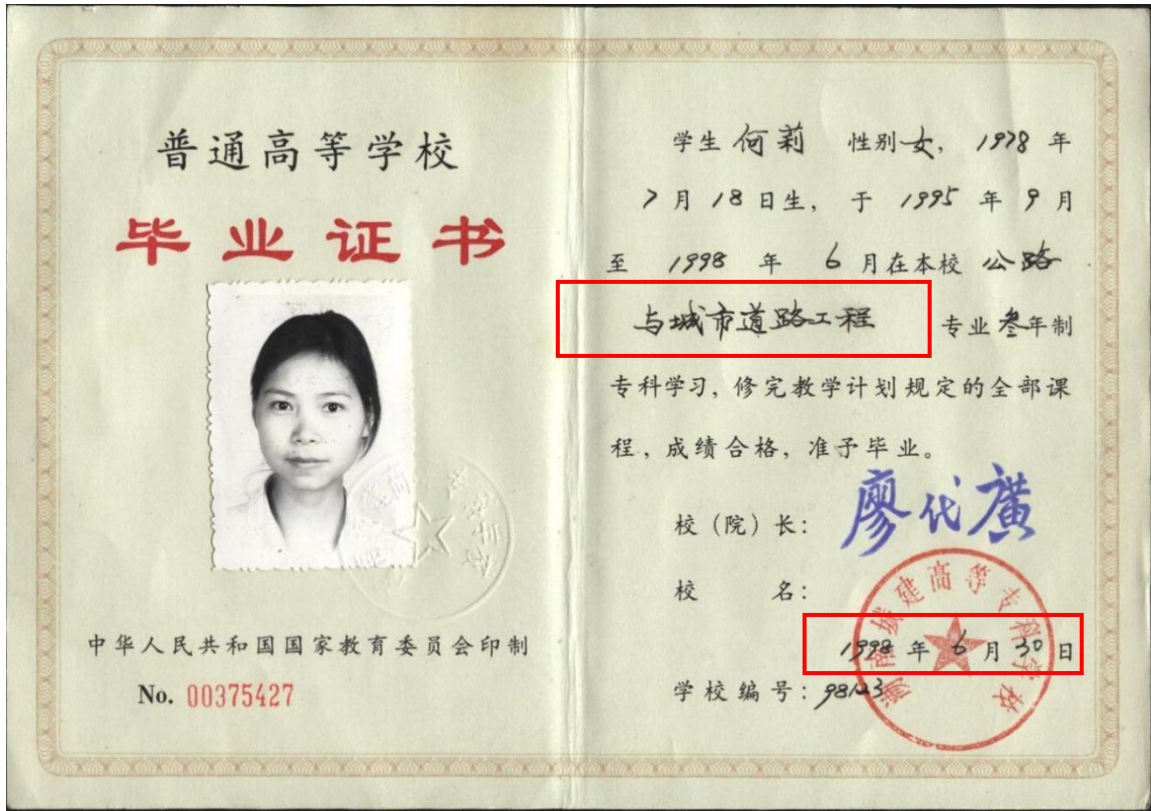 普通高等学校
毕业证书
中华人民共和国国家教育委员会印制
No. 00375427
学生 何莉 性别女，1978 年
7月18日生，于 1995 年 9 月
至 1998 年 6 月在本校 公路
与城市道路工程 专业 叁年制
专科学习，修完教学计划规定的全部课
程，成绩合格，准予毕业。
校（院）长：廖代广
校 名：
湖南城建高等专科学校
1998 年 6 月 30 日
学校编号：98123